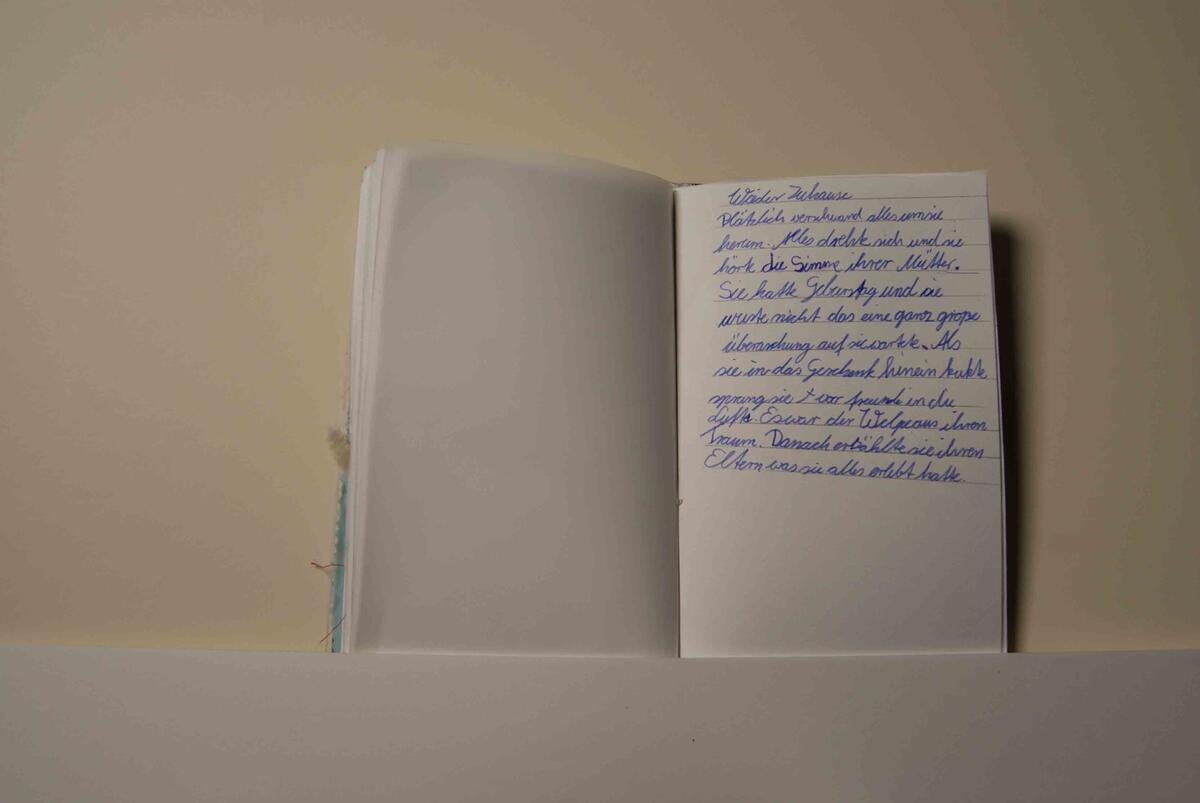 Wieder Zuhause
Plötzlich verschwand alles um sie
herum. Alles drehte sich und sie
hörte die Simme ihrer Mutter.
Sie hatte Geburstag und sie
wuste nicht das eine ganz große
überraschung auf sie wartete. Als
sie in das Geschenk hinein kukte
sprang sie vor freunde in die
Luft. Es war der Welpe aus ihren
Traum. Danach erzählte sie ihren
Eltern was sie alles erlebt hatte.